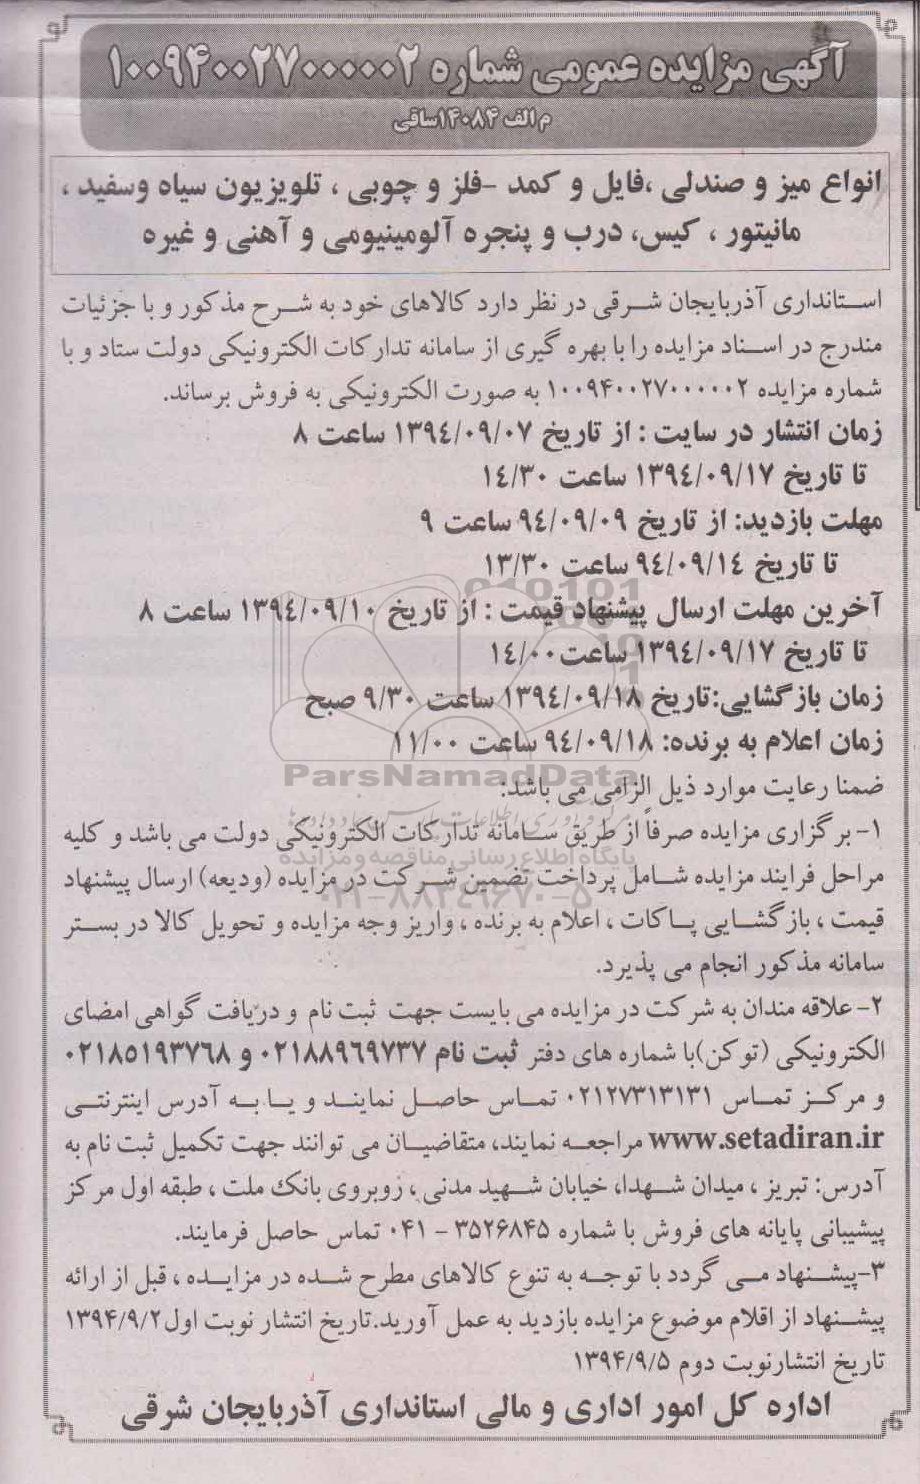 آگهی مزایده عمومی شماره ۱۰۰۹۴۰۰۲۷۰۰۰۰۰۲
م الف ۱۴۰۸۴ساقی
انواع میز و صندلی ،فایل و کمد -فلز و چوبی ، تلویزیون سیاه وسفید ،
مانیتور ، کیس، درب و پنجره آلومینیومی و آهنی و غیره
استانداری آذربایجان شرقی در نظر دارد کالاهای خود به شرح مذکور و با جزئیات
مندرج در اسناد مزایده را با بهره گیری از سامانه تدارکات الکترونیکی دولت ستاد و با
شماره مزایده ۱۰۰۹۴۰۰۲۷۰۰۰۰۰۲ به صورت الکترونیکی به فروش برساند.
زمان انتشار در سایت : از تاریخ ۱۳۹٤/۰۹/۰۷ ساعت ۸
تا تاریخ ۱۳۹٤/۰۹/۱۷ ساعت ۱٤/۳۰
مهلت بازدید: از تاریخ ۹٤/۰۹/۰۹ ساعت ۹
تا تاریخ ۹٤/۰۹/۱٤ ساعت ۱۳/۳۰
آخرین مهلت ارسال پیشنهاد قیمت : از تاریخ ۱۳۹٤/۰۹/۱۰ ساعت ۸
تا تاریخ ۱۳۹٤/۰۹/۱۷ ساعت۱٤/۰۰
زمان بازگشایی:تاریخ ۱۳۹٤/۰۹/۱۸ ساعت ۹/۳۰ صبح
زمان اعلام به برنده: ۹٤/۰۹/۱۸ ساعت ۱۱/۰۰
ParsNamadData
ضمنا رعایت موارد ذیل الزامی می باشد:
۱- برگزاری مزایده صرفاً از طریق سامانه تدارکات الکترونیکی دولت می باشد و کلیه
پایگاه اطلاع رسانی مناقصه و مزایده
مراحل فرایند مزایده شامل پرداخت تضمین شرکت در مزایده (ودیعه) ارسال پیشنهاد
۰۲۱-۸۸۳۴۹۶۷۰-۵
قیمت ، بازگشایی پاکات ، اعلام به برنده ، واریز وجه مزایده و تحویل کالا در بستر
سامانه مذکور انجام می پذیرد.
۲- علاقه مندان به شرکت در مزایده می بایست جهت ثبت نام و دریافت گواهی امضای
الکترونیکی (توکن)با شماره های دفتر ثبت نام ۰۲۱۸۸۹۶۹۷۳۷ و ۰۲۱۸۵۱۹۳۷۶۸
و مرکز تماس ۰۲۱۲۷۳۱۳۱۳۱ تماس حاصل نمایند و یا به آدرس اینترنتی
www.setadiran.ir مراجعه نمایند، متقاضیان می توانند جهت تکمیل ثبت نام به
آدرس: تبریز ، میدان شهدا، خیابان شهید مدنی ، روبروی بانک ملت ، طبقه اول مرکز
پیشیبانی پایانه های فروش با شماره ۳۵۲۶۸۴۵ - ۰۴۱ تماس حاصل فرمایند.
۳-پیشنهاد می گردد با توجه به تنوع کالاهای مطرح شده در مزایده ، قبل از ارائه
پیشنهاد از اقلام موضوع مزایده بازدید به عمل آورید.تاریخ انتشار نوبت اول۱۳۹۴/۹/۲
تاریخ انتشارنوبت دوم ۱۳۹۴/۹/۵
اداره کل امور اداری و مالی استانداری آذربایجان شرقی